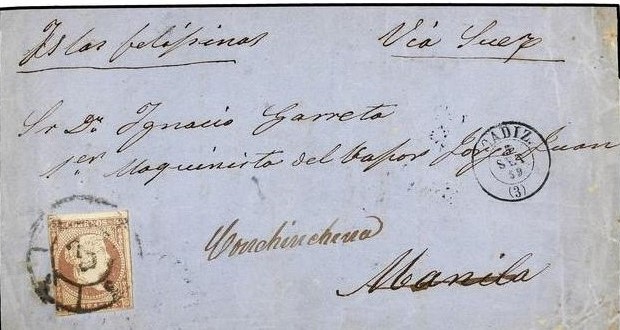 Islas felipinas Via Suez
Sr Dn Ignacio Garreta
1er Maquinista del Vapor Jorge Juan
Conchinchina
Manila
CADIZ
SET
59
(3)